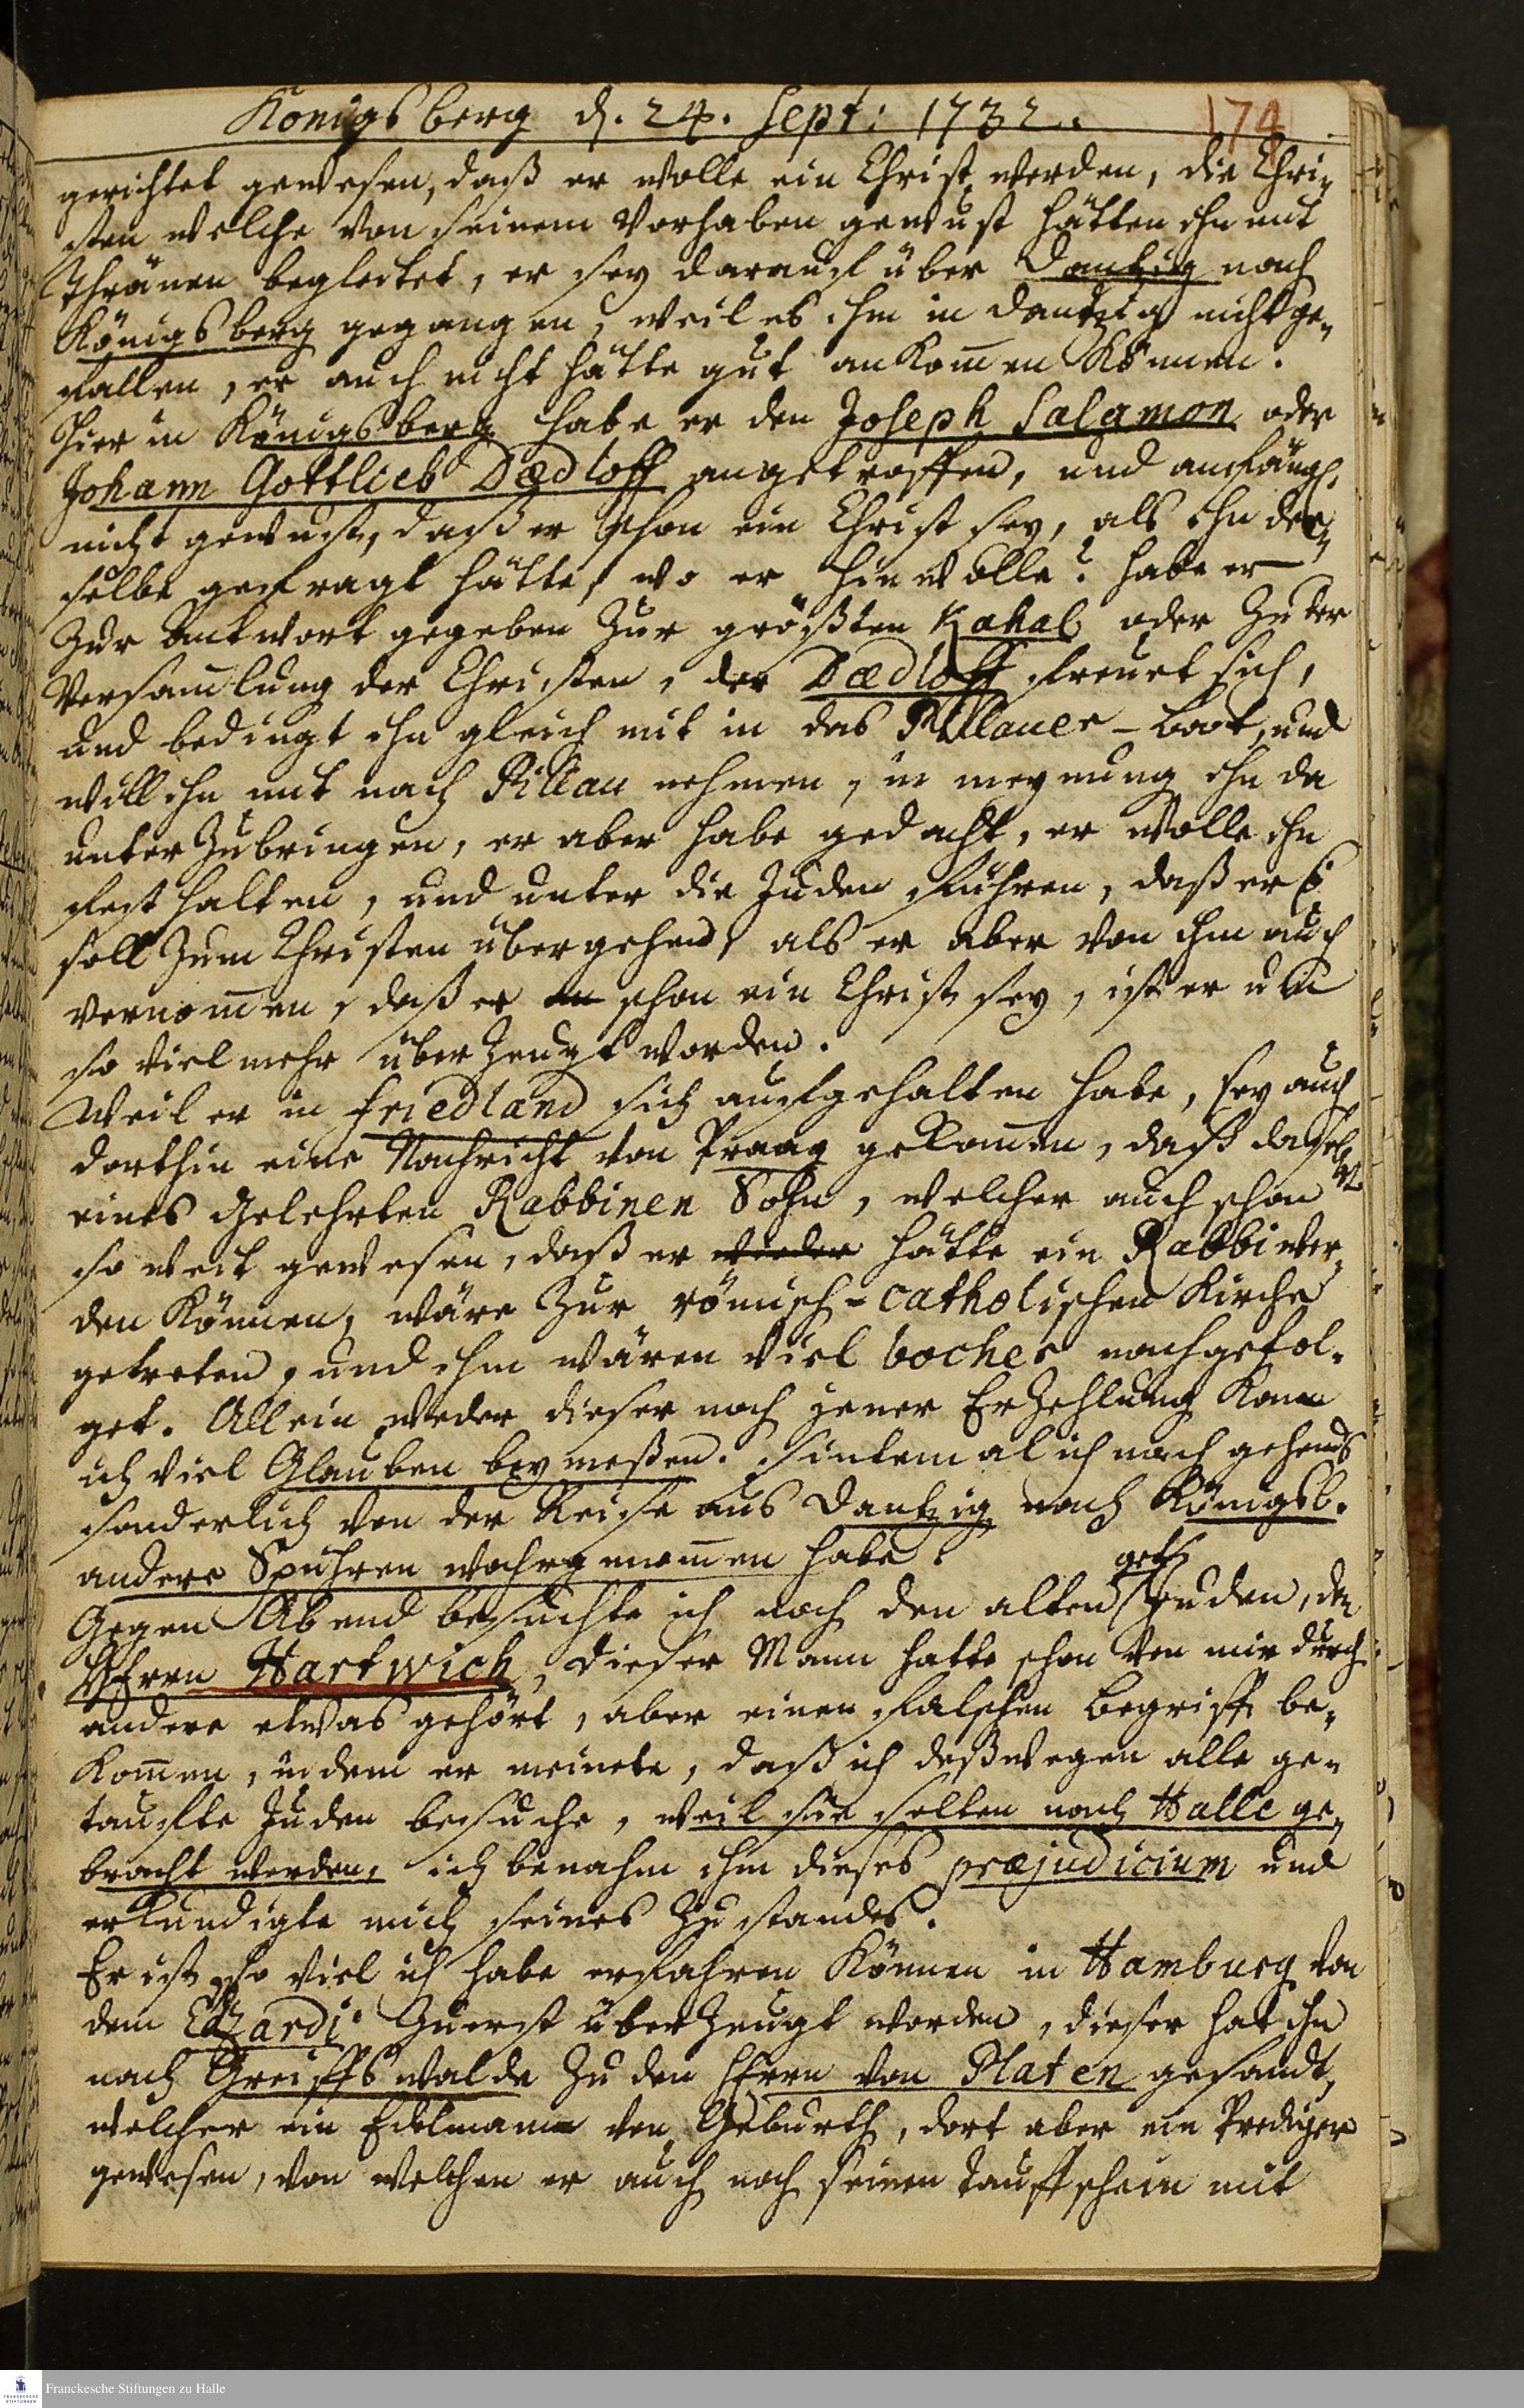 Königsberg d. 24. Sept: 1732.
174
gerichtet gewesen, daß er wolle ein Christ werden, die Chri-
sten welche von seinem Vorhaben gewust hätten ihn mit
Thränen begleitet, er sey darauf über Dantzig nach
Königsberg gegangen, weil es ihm in Dantzig nicht ge-
fallen, er auch nicht hätte gut ankom̄en können.
Hier in Königsberg habe er den Joseph Salamon oder
Johann Gottlieb Dædloff angetroffen, und anfängl.
nicht gewust, daß er schon ein Christ sey, als ihn der-
selbe gefragt hätte, wo er hin wolle? habe er
zur Antwort gegeben zur größten Kahal oder zu der
Versam̄lung der Christen, der Dædloff freuet sich,
und bedingt ihn gleich mit in das Pillauer-Boot, und
will ihn mit nach Pillau nehmen, in meynung ihn da
unterzubringen, er aber habe gedacht, er wolle ihn
fest halten, und unter die Juden führen, daß er
soll zum Christen übergehen, als er aber von ihm auch
vernom̄en, daß er schon ein Christ sey, ist er um
so viel mehr überzeugt worden.
Weil er in Friedland sich aufgehalten habe, sey auch
dorthin eine Nachricht von Praag gekom̄en, daß daselbst
eines gelehrten Rabbinen Sohn, welcher auch schon
so weit gewesen, daß er wieder hätte ein Rabbi wer-
den können, wäre zur römisch-catholischen Kirche
getreten, und ihm wären viel bocher nachgefol-
get. Allein weder dieser noch jener Erzehlung kann
ich viel Glauben beymeßen. sintemal ich nachgehends
sonderlich von der Reise aus Dantzig nach Königsb.
andere Spuhren wahrgenom̄en habe.
Gegen Abend besuchte ich noch den alten get. Juden, den
Herrn Hartwich, dieser Mann hatte schon von mir durch
andere etwas gehört, aber einen falschen Begriff be-
kom̄en, indem er meinete, daß ich deßwegen alle ge-
taufte Juden besuche, weil sie solten nach Halle ge-
bracht werden, ich benahm ihm dieses præjudicium und
erkundigte mich seines Zustandes.
Er ist so viel ich habe erfahren können in Hamburg von
dem Edzardi zuerst überzeugt worden, dieser hat ihn
nach Greiffswalde zu den Herrn von Platen gesandt,
welcher ein Edelmann von Geburth, dort aber ein Prediger
gewesen, von welchen er auch noch seinen Tauffschein mit
Franckesche Stiftungen zu Halle